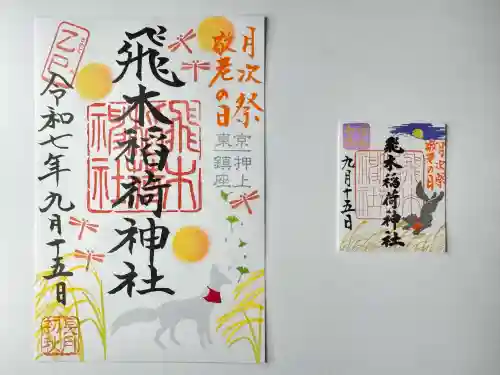 月次祭
敬老の日
東京押上鎮座
飛木稲荷神社
令和七年九月十五日
飛木稲荷神社
長月
初秋
月次祭
敬老の日
飛木稲荷神社
九月十五日